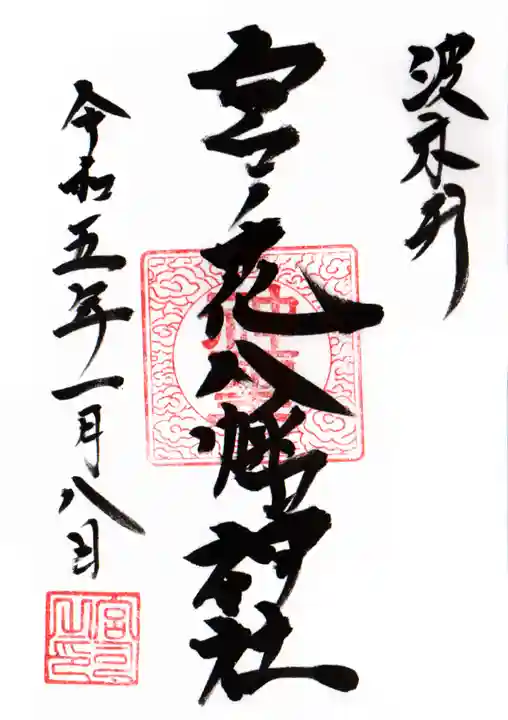 波木列
宮ノ花八幡神社
令和五年一月八日